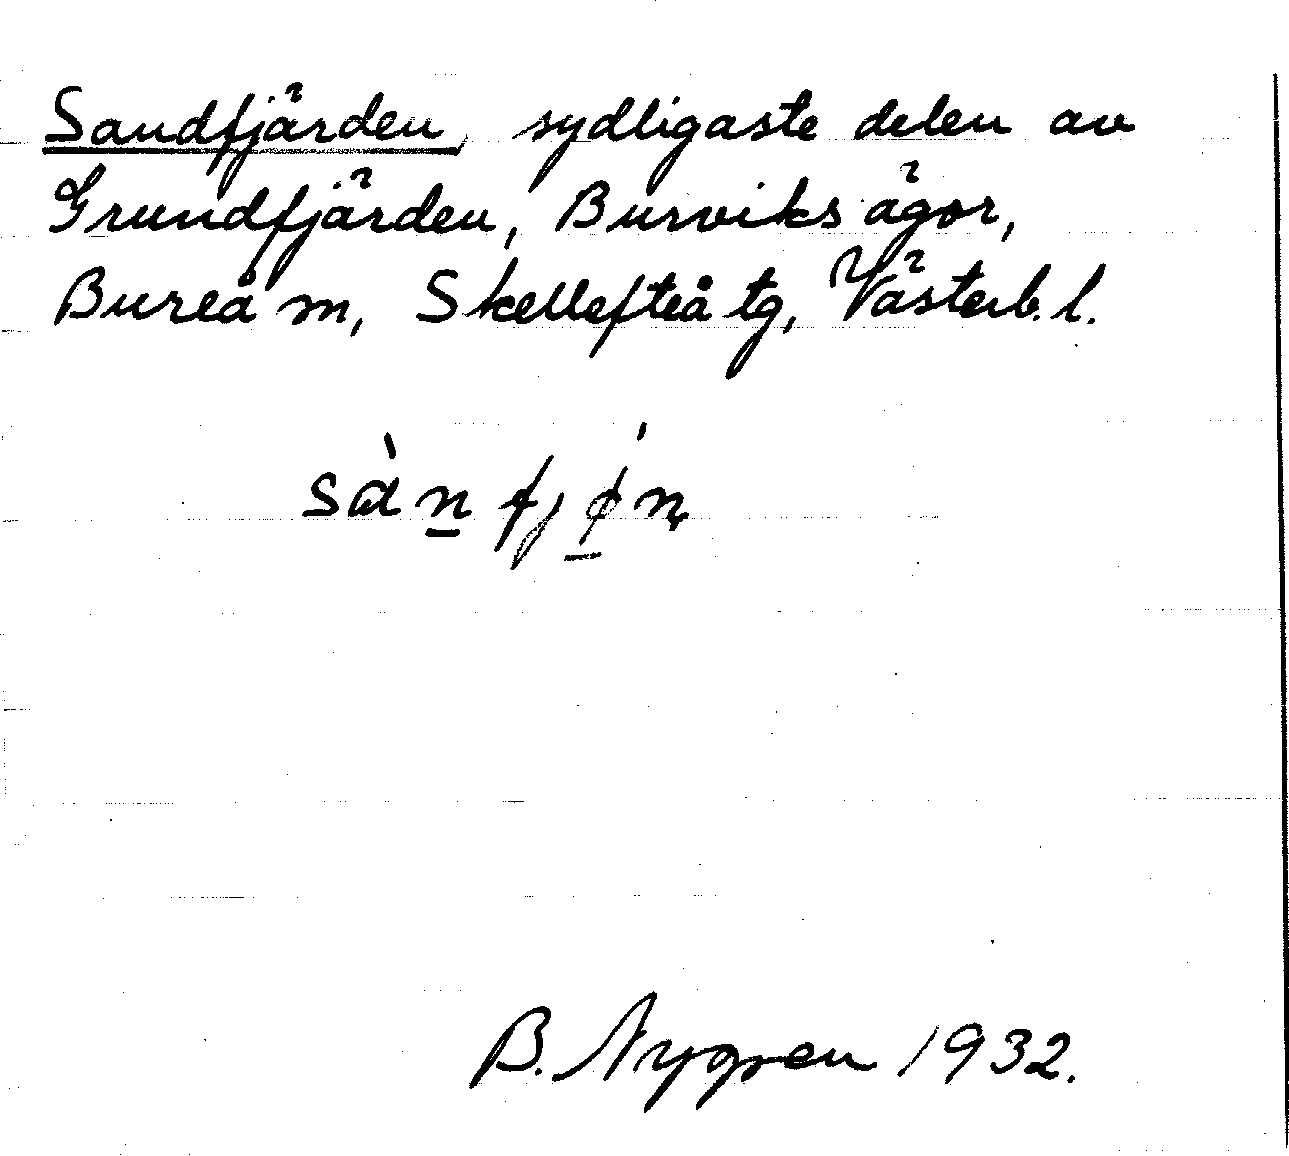 Sandfjärden, sydligaste delen av
Grundfjärden, Burviks ägor,
Bureå m, Skellefteå tg, Västerb. l.
B. Nygren 1932.